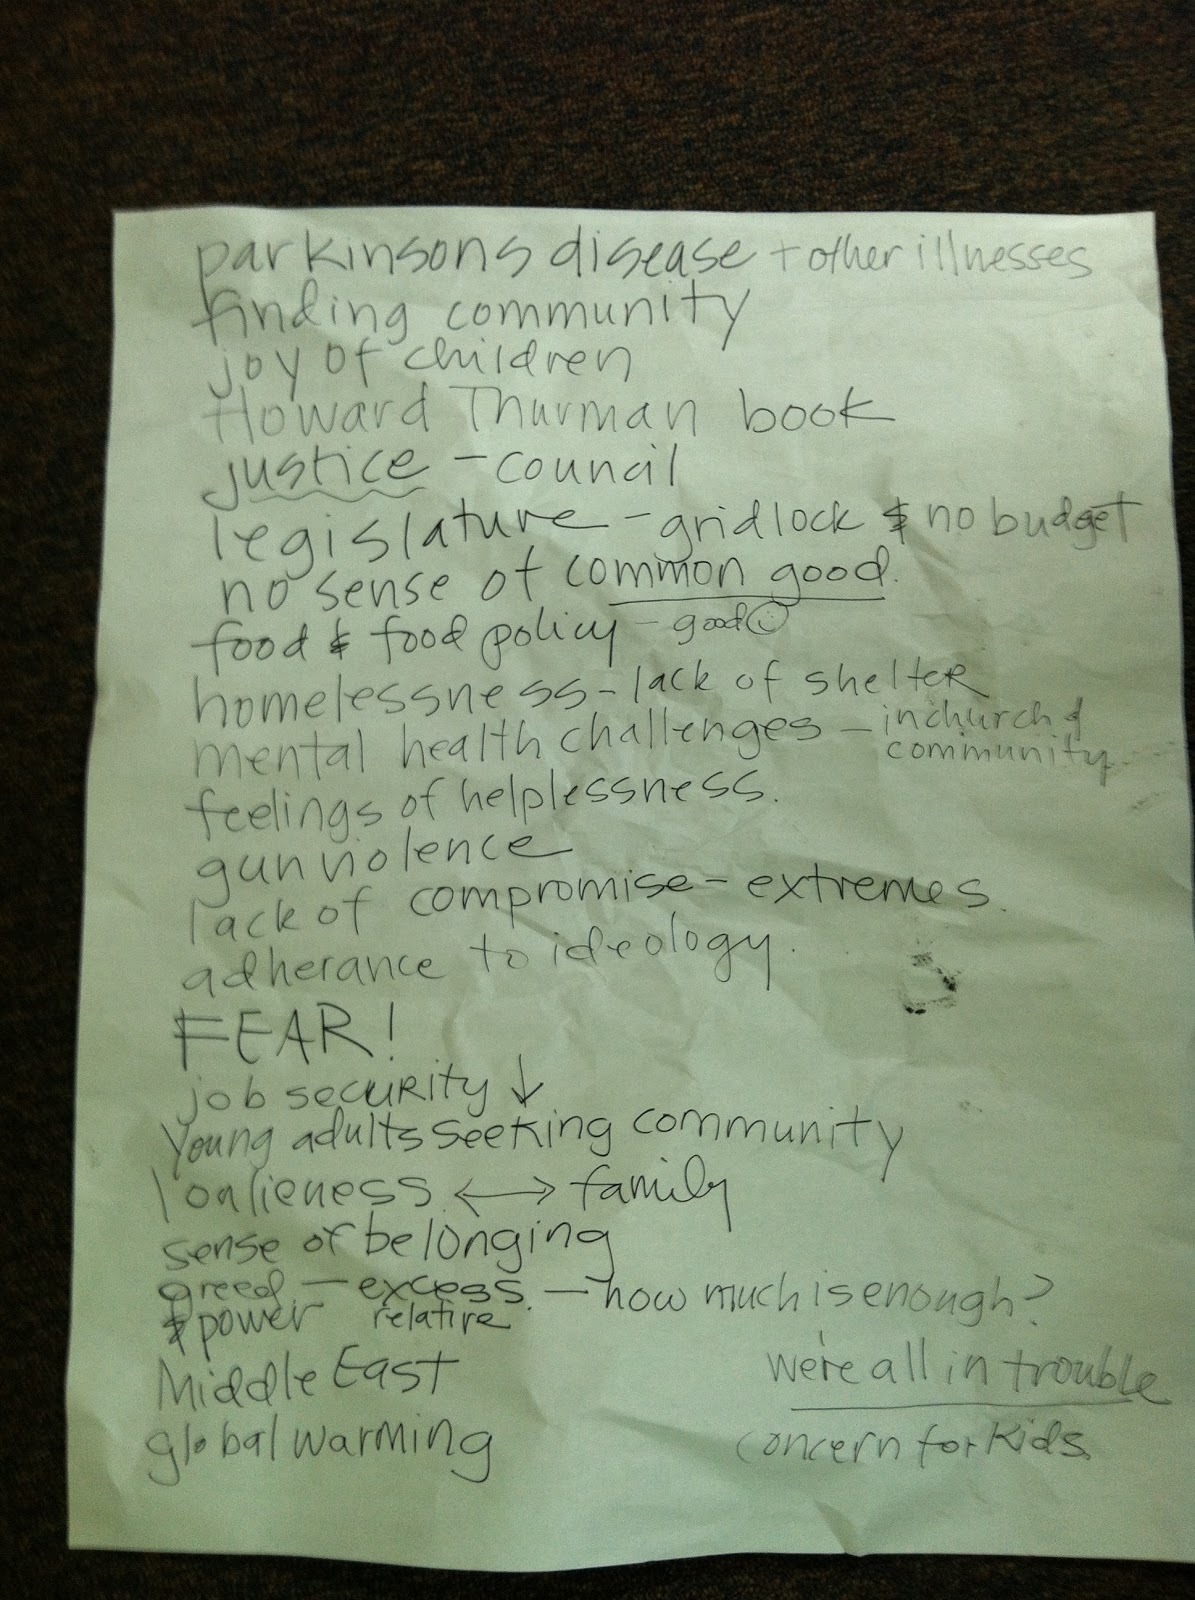 parkinsons disease + other illnesses
finding community
joy of children
Howard Thurman book
justice - council
legislature - gridlock & no budget
no sense of common good.
food & food policy - good ☺
homelessness - lack of shelter
mental health challenges - in church &
community
feelings of helplessness.
gun violence
lack of compromise - extremes.
adherance to ideology.
FEAR!
job security ↓
Young adults seeking community
lonlieness ⟷ family
sense of belonging
greed - excess. - how much is enough?
& power relative
Middle East
we're all in trouble
global warming
concern for kids.